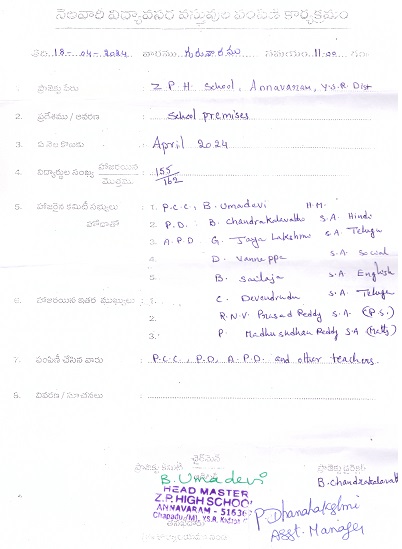 నెలవారీ విద్యావసర వస్తువుల పంపిణీ కార్యక్రమం
తేది 18-04-2024 వారము గురువారము సమయం 11:00 గం
1. ప్రాజెక్టు పేరు : Z P H School, Annavaram, Y.S.R Dist
2. ప్రదేశము / ఆవరణ : School premises
3. ఏ నెల కొరకు : April 2024
4. విద్యార్థుల సంఖ్య హాజరయిన / మొత్తము : 155/162
5. హాజరైన కమిటీ సభ్యులు : 1. P.C.C, B. Umadevi H.M.
హోదాతో : 2. P.D. B. Chandrakalavathi S.A. Hindi
3. A.P.D G. Jaya Lakshmi S.A Telugu
4. D. Vannuppa S.A. Social
5. B. Sailaja S.A. English
6. హాజరయిన ఇతర ముఖ్యులు : 1. C. Devendrudu S.A. Telugu
2. R.N.V. Prasad Reddy S.A. (P.S.)
3. P. Madhusudhan Reddy S.A (Maths)
7. పంపిణీ చేసిన వారు : P.C.C, P.D, A.P.D. and other teachers.
8. వివరణ / సూచనలు :
చైర్‌మెన్
ప్రాజెక్టు కమిటీ
ప్రాజెక్టు డైరెక్టర్
B. Umadevi
B. Chandrakalavathi
HEAD MASTER
Z.P. HIGH SCHOOL
ANNAVARAM - 51636
Chapadu(M), Y.S.R. Kadapa
P. Dhanalakshmi
Asst. Manager